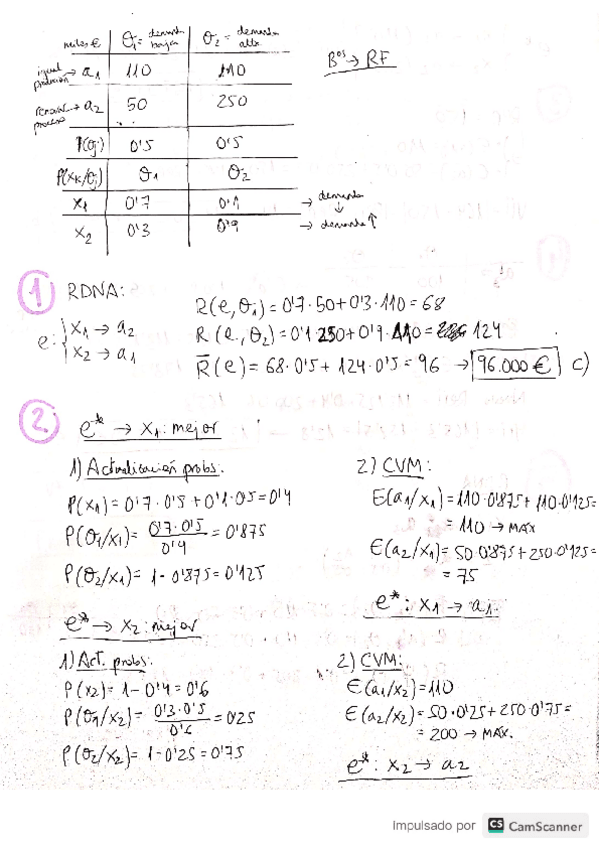 miles € | θ1 = demanda baja | θ2 = demanda alta
B^os → RF
igual producción → a1 | 110 | 110
renovar proceso → a2 | 50 | 250
P(θj) | 0'5 | 0'5
P(xk/θj) | θ1 | θ2
x1 | 0'7 | 0'1 → demanda ↓
x2 | 0'3 | 0'9 → demanda ↑
1 RDNA:
e: { x1 → a2
x2 → a1
R(e, θ1) = 0'7 · 50 + 0'3 · 110 = 68
R(e, θ2) = 0'1 · 250 + 0'9 · 110 = 124
R̄(e) = 68 · 0'5 + 124 · 0'5 = 96 → 96.000 € c)
2 e* → x1: mejor
1) Actualización probs:
P(x1) = 0'7 · 0'5 + 0'1 · 0'5 = 0'4
P(θ1/x1) = 0'7 · 0'5 / 0'4 = 0'875
P(θ2/x1) = 1 - 0'875 = 0'125
2) CVM:
E(a1/x1) = 110 · 0'875 + 110 · 0'125 =
= 110 → MAX
E(a2/x1) = 50 · 0'875 + 250 · 0'125 =
= 75
e*: x1 → a1
e* → x2: mejor
1) Act. probs:
P(x2) = 1 - 0'4 = 0'6
P(θ1/x2) = 0'3 · 0'5 / 0'6 = 0'25
P(θ2/x2) = 1 - 0'25 = 0'75
2) CVM:
E(a1/x2) = 110
E(a2/x2) = 50 · 0'25 + 250 · 0'75 =
= 200 → MAX.
e*: x2 → a2
Impulsado por CS CamScanner